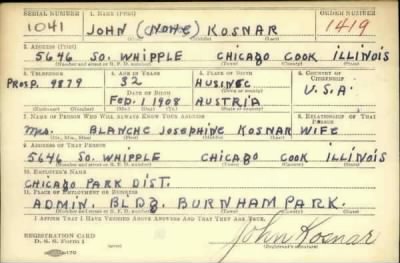 SERIAL NUMBER 1. NAME (Print) ORDER NUMBER
1041 JOHN (NONE) KOSNAR 1419
(First) (Middle) (Last)
2. ADDRESS (Print)
5646 SO. WHIPPLE CHICAGO COOK ILLINOIS
(Number and street or R. F. D. number) (Town) (County) (State)
3. TELEPHONE 4. AGE IN YEARS 5. PLACE OF BIRTH 6. COUNTRY OF CITIZENSHIP
PROSP. 9879 32 HUSINEC U.S.A.
DATE OF BIRTH
FEB. 1 1908 AUSTRIA
(Exchange) (Number) (Mo.) (Day) (Yr.) (State or country)
7. NAME OF PERSON WHO WILL ALWAYS KNOW YOUR ADDRESS 8. RELATIONSHIP OF THAT PERSON
MRS. BLANCHE JOSEPHINE KOSNAR WIFE
(Mr., Mrs., Miss) (First) (Middle) (Last)
9. ADDRESS OF THAT PERSON
5646 SO. WHIPPLE CHICAGO COOK ILLINOIS
(Number and street or R. F. D. number) (Town) (County) (State)
10. EMPLOYER'S NAME
CHICAGO PARK DIST.
11. PLACE OF EMPLOYMENT OR BUSINESS
ADMIN. BLDG. BURNHAM PARK.
(Number and street or R. F. D. number) (Town) (County) (State)
I AFFIRM THAT I HAVE VERIFIED ABOVE ANSWERS AND THAT THEY ARE TRUE.
REGISTRATION CARD John Kosnar
D. S. S. Form 1 (Registrant's signature)